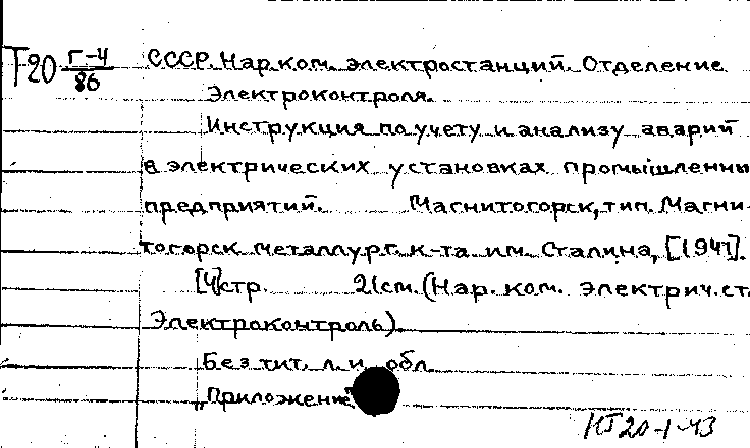 Т20 Г-4/86 СССР. Нар. ком. электростанций. Отделение
Электроконтроля.
Инструкция по учету и анализу аварий
в электрических установках промышленны
предприятий. Магнитогорск, тип. Магни-
тогорск. металлург. к-та им. Сталина, [1941].
[4]стр. 21см. (Нар. ком. электрич. ст.
Электроконтроль).
Без тит. л. и обл.
„Приложение"
КТ20-1-43